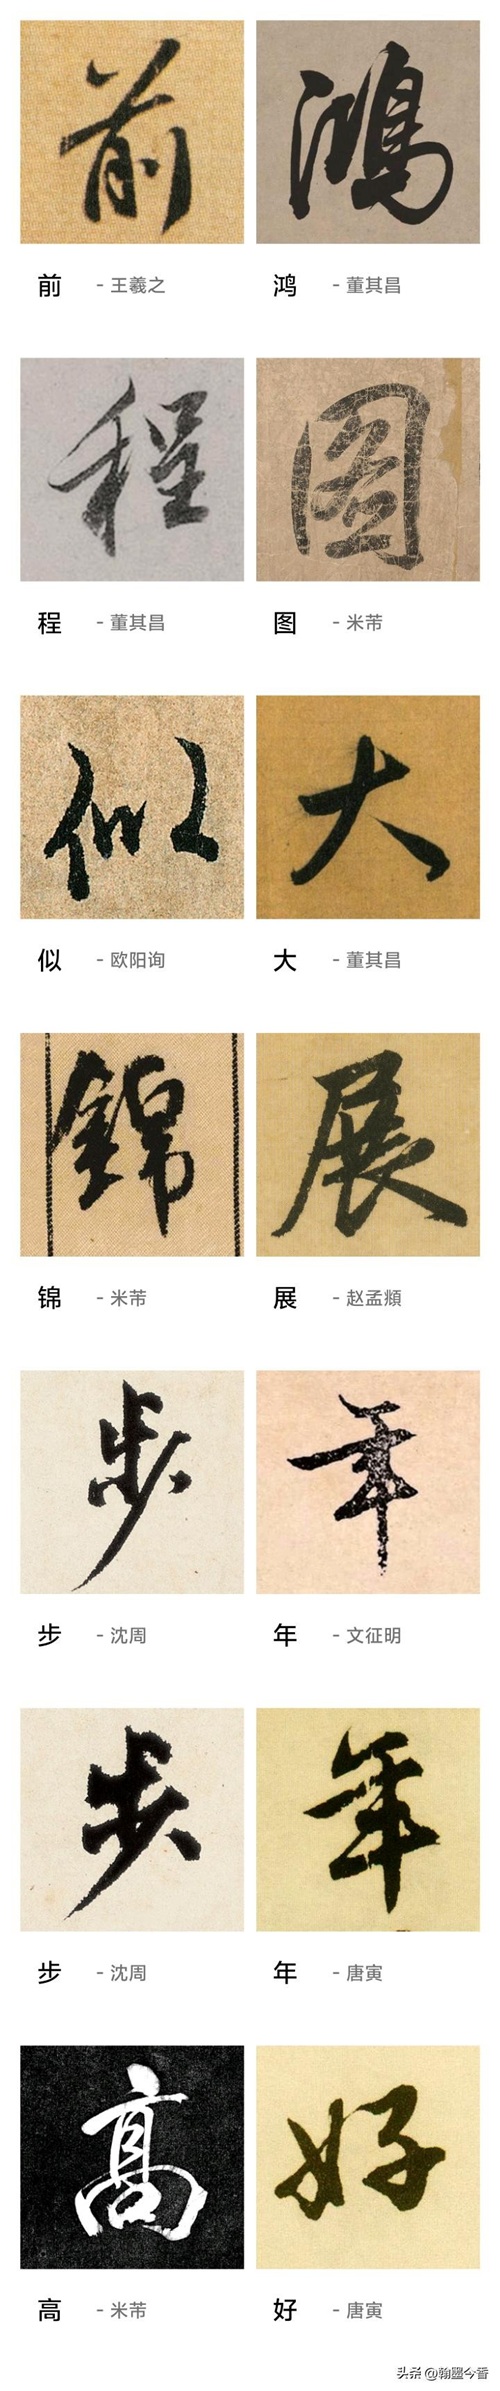 前 鸿
前 - 王羲之 鸿 - 董其昌
程 图
程 - 董其昌 图 - 米芾
似 大
似 - 欧阳询 大 - 董其昌
錦 展
锦 - 米芾 展 - 赵孟頫
步 年
步 - 沈周 年 - 文征明
步 年
步 - 沈周 年 - 唐寅
高 好
高 - 米芾 好 - 唐寅
头条 @翰墨今香